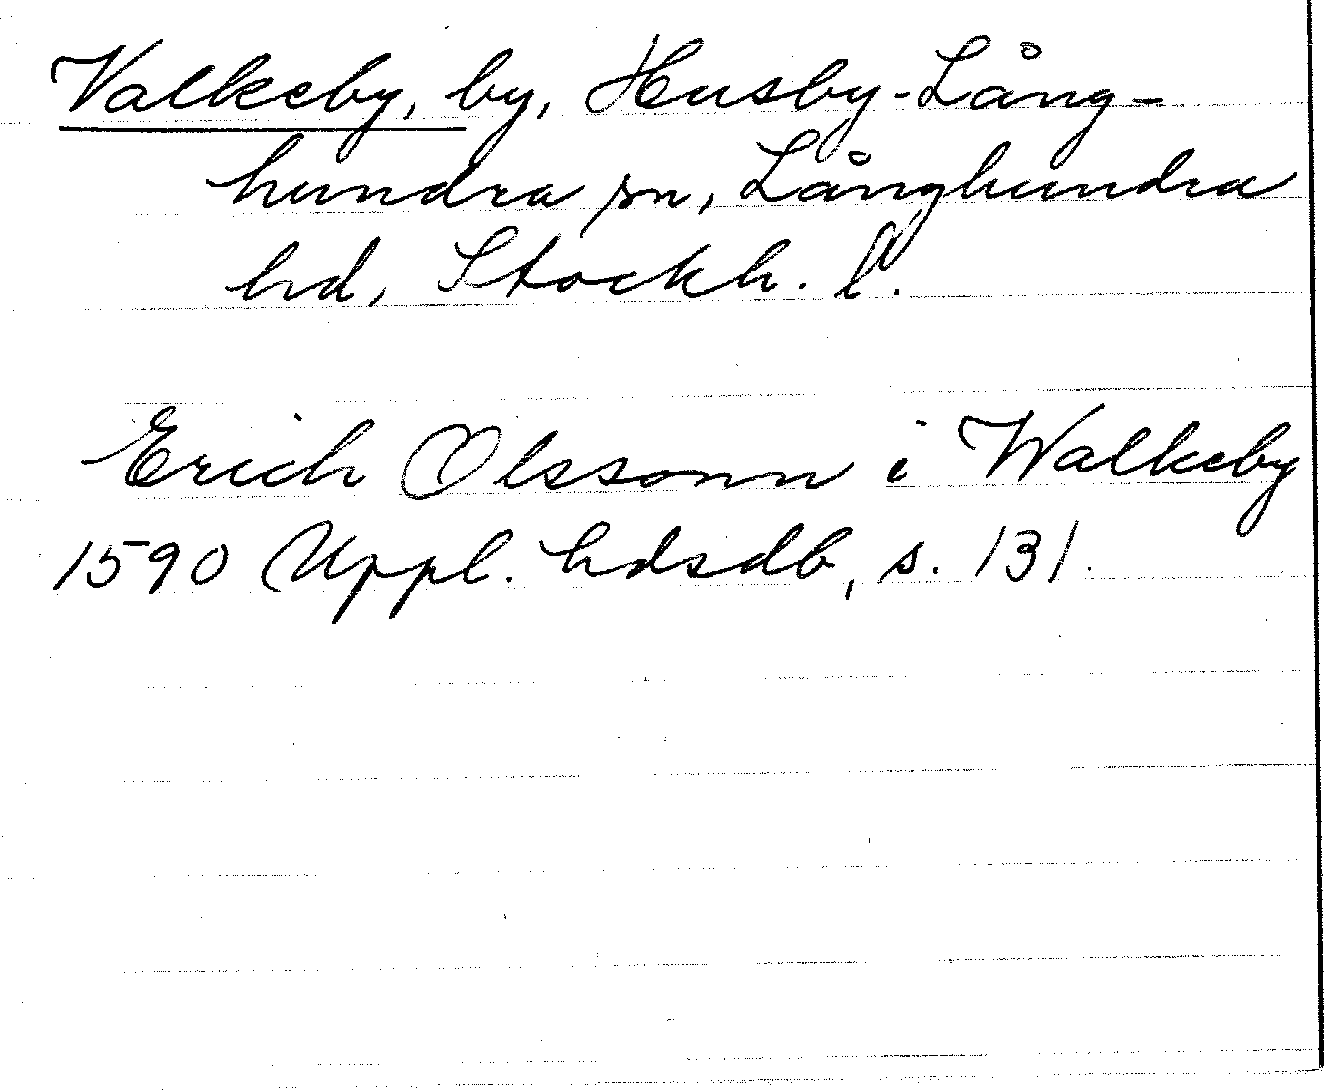 Valkeby, by, Husby-Lång-
hundra sn, Långhundra
hd, Stockh. l.
Erich Olssonn i Walkeby
1590 Uppl. hdsdb, s. 131.